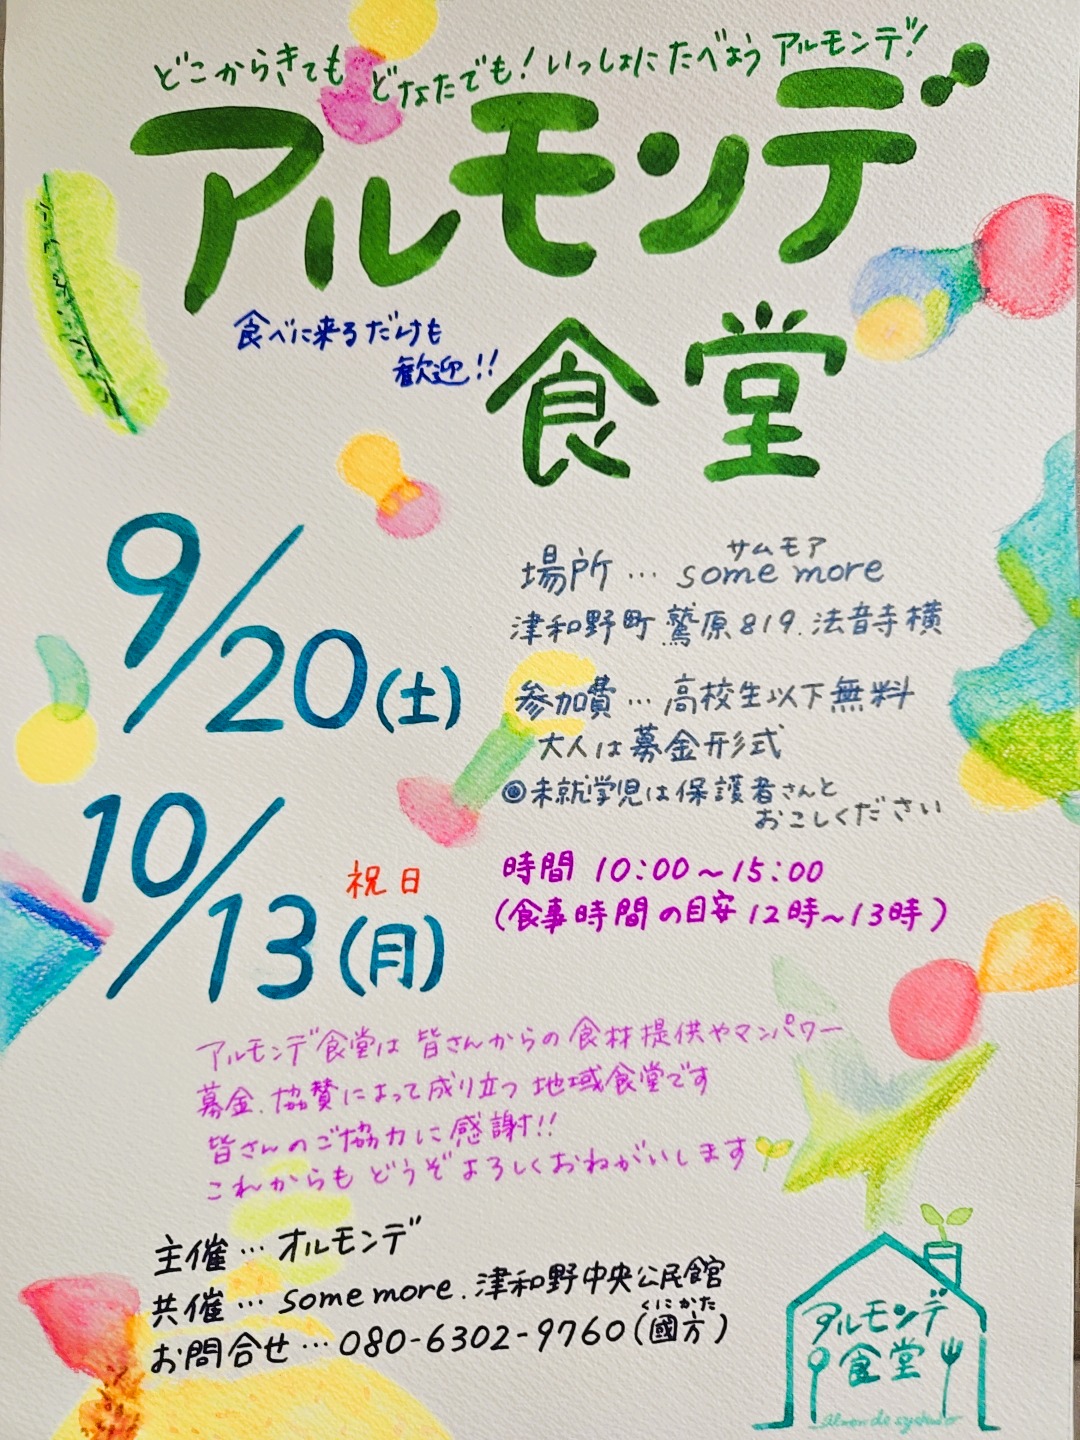 どこからきても どなたでも！いっしょにたべよう アルモンデ！
アルモンデ
食べに来るだけも
歓迎!!
食堂
9/20(土)
場所…some more
サムモア
津和野町鷲原819.法音寺横
参加費…高校生以下無料
大人は募金形式
◎未就学児は保護者さんと
おこしください
10/13(月)
祝日
時間 10:00～15:00
(食事時間の目安12時～13時)
アルモンデ食堂は 皆さんからの食材提供やマンパワー
募金.協賛によって成り立つ 地域食堂です
皆さんのご協力に感謝!!
これからも どうぞよろしくおねがいします
主催…オルモンデ
共催…some more.津和野中央公民館
お問合せ…080-6302-9760(國方)
くにかた
アルモンデ
食堂